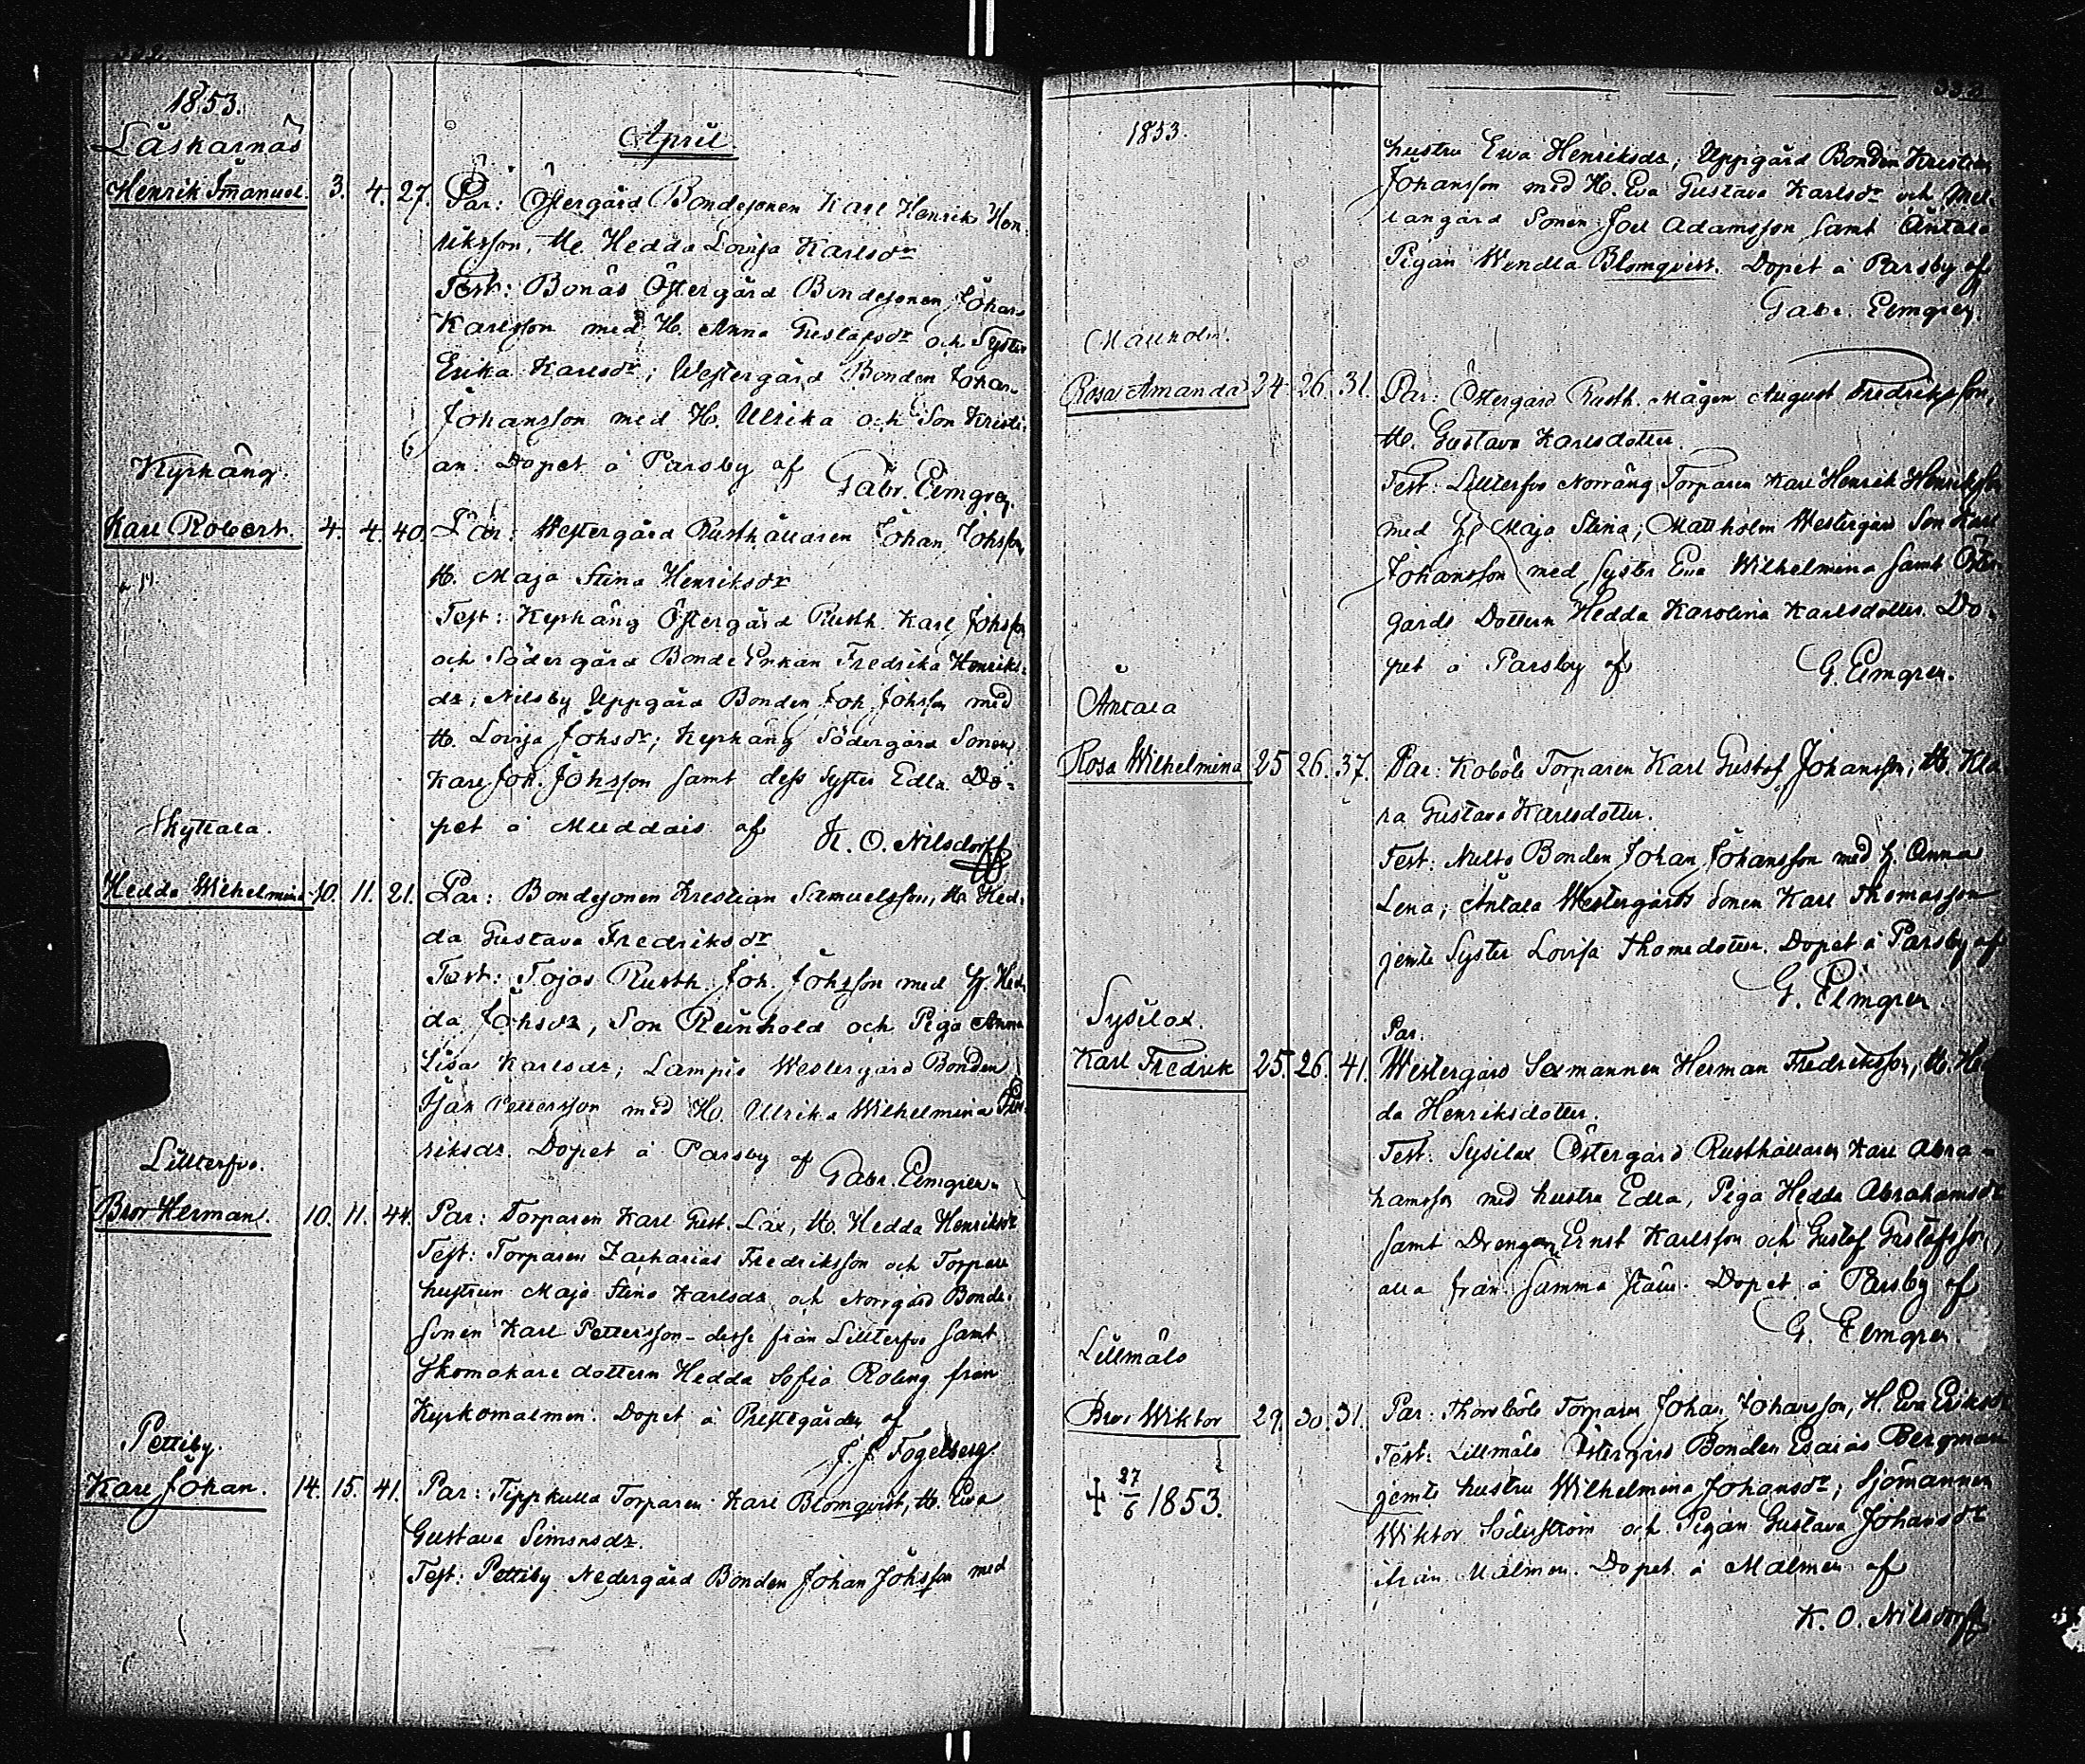 1853.
Läskarnäs
April
Henrik Imanuel. 3. 4. 27. Par: Östergård Bondesonen Karl Henrik Hen
riksson, H. Hedda Lovisa Karlsdr
Test: Bonäs Östergård Bondesonen Johan
Karlsson med H. Anna Gustafsdr och Syster
Erika Karlsdr; Westergård Bonden Johan
Johansson med H. Ulrika och Son Kristi-
an. Dopet å Parsby af
Gabr. Elmgren.
Kyrkäng.
Karl Robert. 4. 4. 40. Par: Westergård Rusthållaren Johan Johsson
H. Maja Stina Henriksdr
Test: Kyrkäng Östergård Rusth. Karl Johsson
och Södergård Bonde Enkan Fredrika Henriks-
dr; Nilsby Uppgård Bonden Joh. Johsson med
H. Lovisa Johsdr; Kyrkäng Södergård Sonen
Karl Joh. Johsson samt dess Syster Edla. Do-
pet å Muddais af K. O. Nilsdorff
Skyttala.
Hedda Wilhelmina 10. 11. 21. Par: Bondesonen Krestian Samuelsson, H. Hed-
da Gustava Fredriksdr
Test: Tojos Rusth. Joh. Johsson med H. Hed-
da Johsdr, Son Reinhold och Piga Anna
Lisa Karlsdr; Lampis Westergård Bonden
Isak Pettersson med H. Ulrika Wilhelmina
riksdr. Dopet å Parsby af Gabr. Elmgren.
Lillterfvo.
Bror Herman. 10. 11. 44. Par: Torparen Karl Gust. Lax, H. Hedda Henriksdr
Test: Torparen Zacharias Fredriksson och Torpare
hustrun Maja Stina Karlsdr och Norrgård Bonde-
sonen Karl Pettersson - desse från Lillterfvo samt
Skomakare dottern Hedda Sofia Roling från
Kyrkomalmen. Dopet å Prestegården af
J. J. Fogelberg
Pettiby.
Karl Johan. 14. 15. 41. Par: Tippkulla Torparen Karl Blomqvist, H. Eva
Gustava Simonsdr.
Test: Pettiby Nedergård Bonden Johan Johsson med
1853.
hustru Eva Henriksdr; Uppgård Bonden Krestian
Johansson med H. Eva Gustava Karlsdr och Mel-
langård Sonen Joel Adamsson samt Äntala
Pigan Wendla Blomqvist. Dopet å Parsby af
Gabr. Elmgren.
Mattholm.
Rosa Amanda 24. 26. 31. Par: Östergård Rusth. Mågen August Fredriksson,
H. Gustava Karlsdotter.
Test: Lillterfvo Norräng Torparen Karl Henrik Henriksson
med H. Maja Stina; Mattholm Westergård Son Karl
Johansson med syster Eva Wilhelmina samt Öster-
gårds Dottern Hedda Karolina Karlsdotter. Do-
pet å Parsby af G. Elmgren.
Äntala
Rosa Wilhelmina 25 26. 37. Par: Koböle Torparen Karl Gustaf Johansson, H. Kla
ra Gustava Karlsdotter.
Test: Nulto Bonden Johan Johansson med H. Anna
Lena; Äntala Westergårds Sonen Karl Thomasson
jemte Syster Lovisa Thomedotter. Dopet å Parsby af
G. Elmgren.
Sysilax.
Par.
Karl Fredrik 25. 26. 41. Westergård Sexmannen Herman Fredriksson, H. He
da Henriksdotter.
Test: Sysilax Östergård Rusthållaren Karl Abra-
hamsson med hustru Edla, Piga Hedda Abrahamsdr
samt Drengarne Ernst Karlsson och Gustaf Gustafsson,
alla från samma ställe. Dopet å Parsby af
G. Elmgren.
Lillmälö
Bror Wiktor 29. 30. 31. Par: Thorsböle Torparen Johan Johansson, H. Eva Eriksdr
Test: Lillmälö Östergård Bonden Esaias Bergman
✝ 27/6 1853. jemte hustru Wilhelmina Johansdr; Sjömannen
Wiktor Söderström och Pigan Gustava Johansdr
ifrån Malmen. Dopet å Malmen af
K. O. Nilsdorff